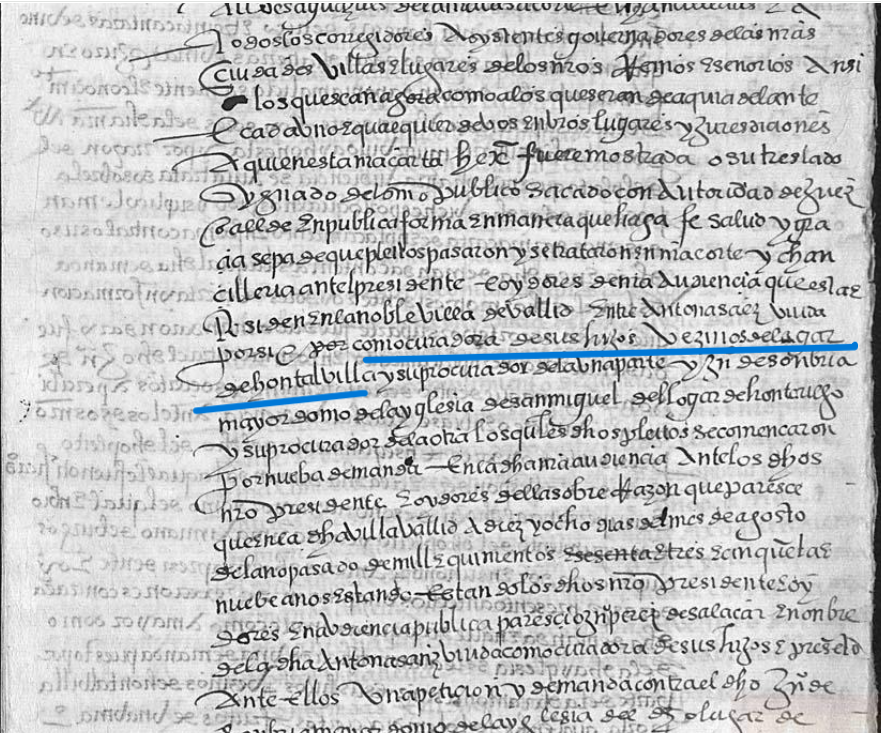 Alldes alguaziles de la mi casa e corte e chancilleria e a
todos los corregidores Asystentes governadores de las mas
ciudades villas e lugares de los nros Reynos e señorios Ansi
a los que es can agora como a los que seran de aqui adelante
E cada bno e qualquier de bos En bros lugares y Jurisdiciones
A quien esta mi carta hex.ª fuere mostrada o su treslado
sygnado de scrivano publico sacado con Autoridad de Juez
o alcde En publica forma En manera que haga fe salud y gra
cia sepades que pleitos pasaron y se trataron En mi corte y chan
cilleria ante el presidente E oydores de la mi Audiencia que esta e
Residen En la noble villa de ballid Entre Antona saez biuda
por si E por como curadora de sus hijos Vezinos del lugar
de hontalbilla y su procurador de la bna parte y Jun de sonbria
mayordomo de la yglesia de san miguel del logar de hontruygo
y su procurador de la otra los quales dhos pleitos se comencaron
por nueba demanda En la dha mi audiencia Ante los dhos
nro presidente E oydores della sobre Razon que paresce
que En la dha billa ballid A diez y ocho dias del mes de agosto
del ano pasado de mill E quinientos sesenta E tres E cinquenta E
nuebe anos Estando Estando los dhos nro presidente E oy
dores En abdiencia publica parescio Jun perez de salacar En nonbre
de la dha Antona sanz biuda como curadora de sus hijos E presento
Ante ellos Vna peticion y demanda contra el dho Jun de
sonbria mayordomo de la yglesia del dho lugar de